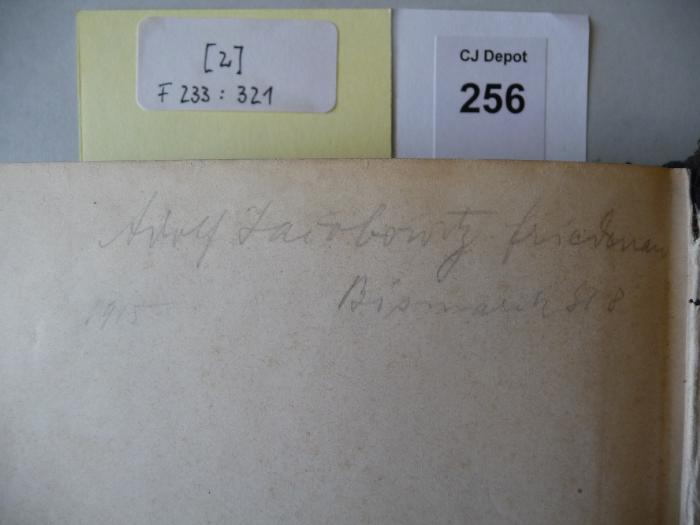 [2]
F 233 : 321
CJ Depot
256
Adolf Jacobowitz Friedenau
1915 Bismarck St 8